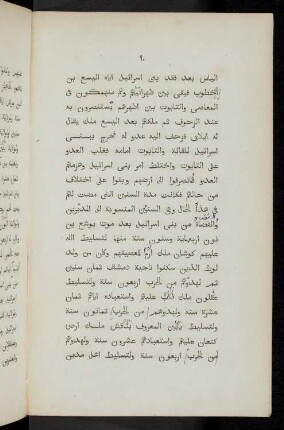 ٩٠
الياس بعد فقد بنى اسرائيل اياه اليسع بن
اخطوب فبقى بين ظهرانيهم وهم منهمكون فى
المعاصى والتابوت بين اظهرهم يستنصرون به
عند الزحوف ثم ملكهم بعد اليسع ملك يقال
له ايلاف فزحف اليه عدو له فخرج ببنى
اسرائيل لقتاله والتابوت امامه فغلب العدو
على التابوت واختلط امر بنى اسرائيل وهزمهم
العدو فانصرفوا الى ارضهم وبقوا على اختلاف
من حالهم فكانت مدة السنين التى مضت لهم
على هذا الحال وفى السنين المنسوبة الى المدبرين
والقضاة من بنى اسرائيل بعد موت يوشع بن
نون اربعمائة وستون سنة منها تسليط الله
عليهم كوشان ملك لمعصيتهم وكان من ولد
لوط الذين سكنوا ناحية دمشق ثمان سنين
ثم ليهودهم من الحرب اربعون سنة ولتسليط
عقلون ملك عليهم واستعباده اياهم ثمان
عشرة سنة وليهودهم من الحرب ثمانون سنة
ولتسليط يابين المعروف ملك ارض
كنعان عليهم واستعبادهم عشرون سنة ولهدوهم
من الحرب اربعون سنة ولتسليط اهل مدين